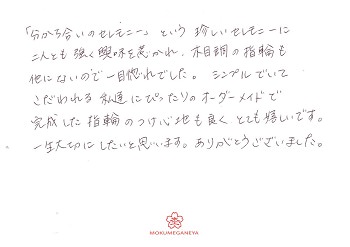 「分かち合いのセレモニー」という珍しいセレモニーに
二人とも強く興味を惹かれ、木目調の指輪も
他にないので一目惚れでした。シンプルでいて
こだわれる私達にぴったりのオーダーメイドで
完成した指輪のつけ心地も良く、とても嬉しいです。
一生大切にしたいと思います。ありがとうございました。
MOKUMEGANEYA